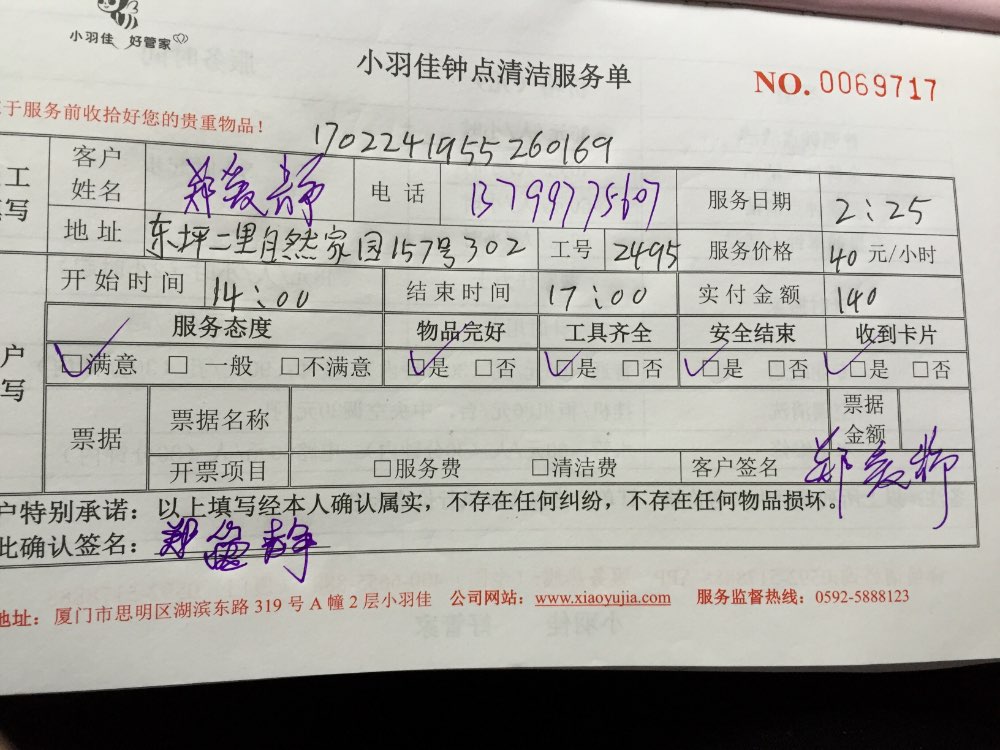 小羽佳 好管家
小羽佳钟点清洁服务单
NO. 0069717
于服务前收拾好您的贵重物品！
1702241955260169
工 写 客户姓名 郑 静 电话 13799775607 服务日期 2:25
地址 东坪二里自然家园157号302 工号 2495 服务价格 40 元/小时
开始时间 14:00 结束时间 17:00 实付金额 140
户 写 服务态度 物品完好 工具齐全 安全结束 收到卡片
☑满意 □一般 □不满意 ☑是 □否 ☑是 □否 ☑是 □否 ☑是 □否
票据 票据名称 票据金额
开票项目 □服务费 □清洁费 客户签名 郑
户特别承诺：以上填写经本人确认属实，不存在任何纠纷，不存在任何物品损坏。
此确认签名：郑 静
地址：厦门市思明区湖滨东路 319 号 A 幢 2 层小羽佳 公司网站：www.xiaoyujia.com 服务监督热线：0592-5888123